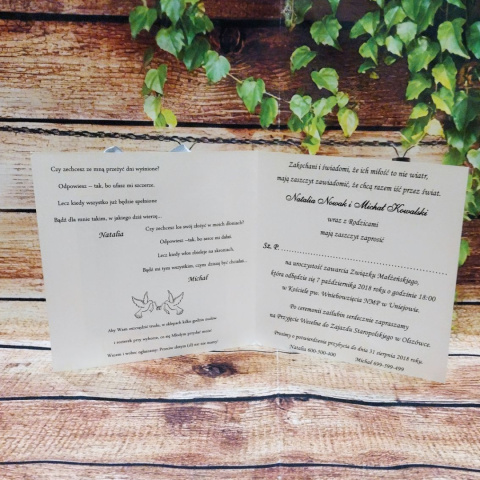 Czy zechcesz ze mną przeżyć dni wyśnione?
Odpowiesz – tak, bo ufasz mi szczerze.
Lecz kiedy wszystko już będzie spełnione
Bądź dla mnie takim, w jakiego dziś wierzę...
Natalia
Czy zechcesz los swój złożyć w moich dłoniach?
Odpowiesz – tak, bo serce mi dałaś.
Lecz kiedy włos zbieleje na skroniach,
Bądź mi tym wszystkim, czym dzisiaj być chciałaś...
Michał
Aby Wam oszczędzić trudu, w sklepach kilku godzin nudów
i rozterek przy wyborze, co się Młodym przydać może
Wszem i wobec ogłaszamy: Prezent złożony
Zakochani i świadomi, że ich miłość to nie wiatr,
mają zaszczyt zawiadomić, że chcą razem iść przez świat.
Natalia Nowak i Michał Kowalski
wraz z Rodzicami
mają zaszczyt zaprosić
Sz. P.
na uroczystość zawarcia Związku Małżeńskiego,
która odbędzie się 7 października 2018 roku o godzinie 18:00
w Kościele pw. Wniebowzięcia NMP w Uniejowie.
Po ceremonii zaślubin serdecznie zapraszamy
na Przyjęcie Weselne do Zajazdu Staropolskiego w Olszówce.
Prosimy o potwierdzenie przybycia do dnia 31 sierpnia 2018 roku.
Natalia 800-500-400 Michał 699-599-499